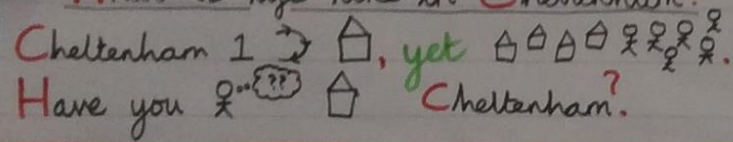 Cheltenham 1 , yet .
Have you ?? Cheltenham?